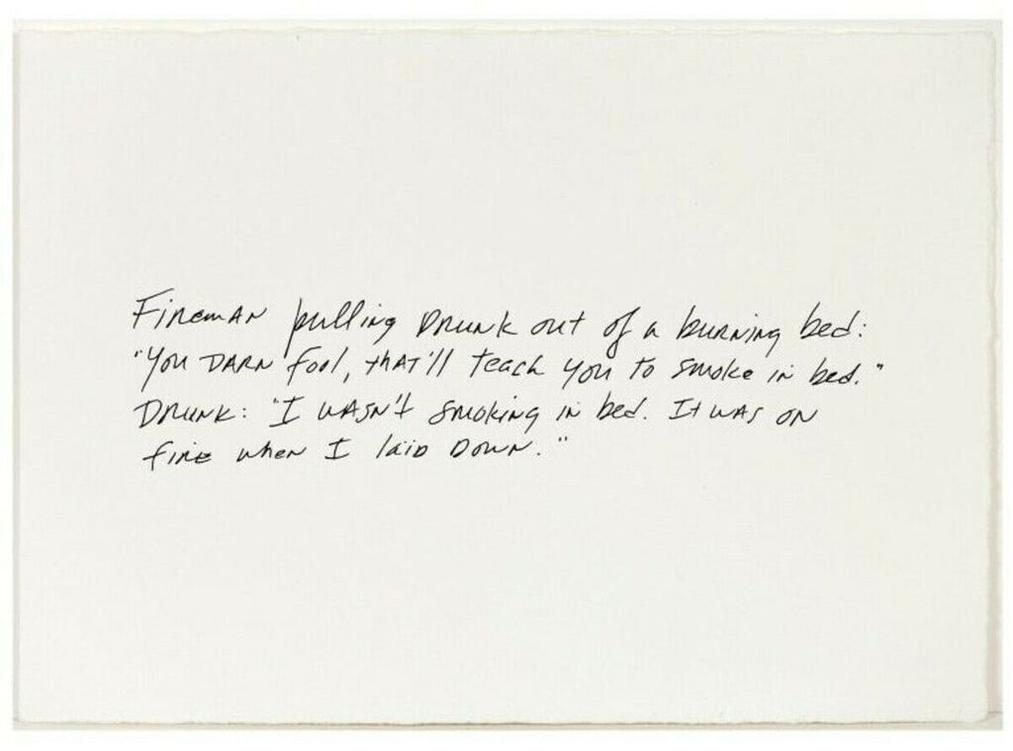 Fireman pulling Drunk out of a burning bed:
"You DARN fool, that'll teach you to smoke in bed."
Drunk: "I wasn't smoking in bed. It was on
fire when I laid down."